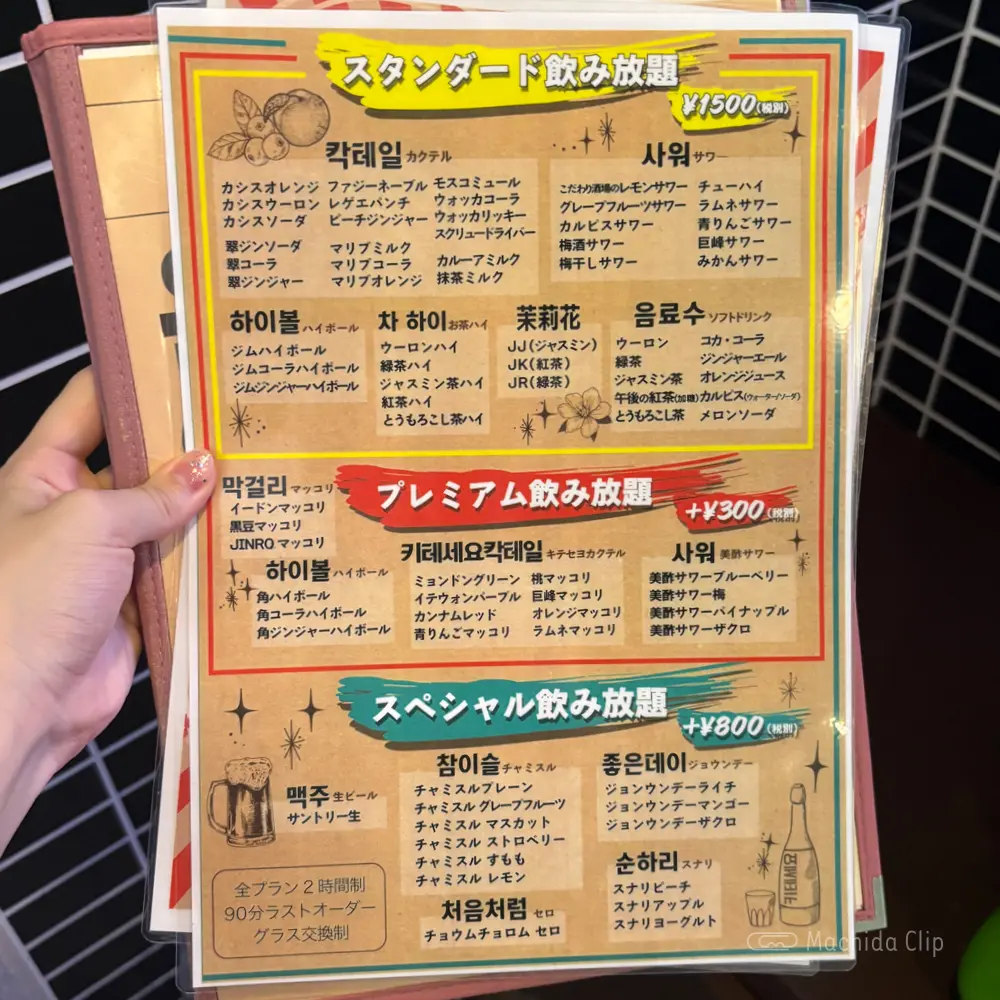 スタンダード飲み放題
¥1500(税別)
칵테일 カクテル
カシスオレンジ ファジーネーブル モスコミュール
カシスウーロン レゲエパンチ ウォッカコーラ
カシスソーダ ピーチジンジャー ウォッカリッキー
スクリュードライバー
翠ジンソーダ マリブミルク
翠コーラ マリブコーラ カルーアミルク
翠ジンジャー マリブオレンジ 抹茶ミルク
사워 サワー
こだわり酒場のレモンサワー チューハイ
グレープフルーツサワー ラムネサワー
カルピスサワー 青りんごサワー
梅酒サワー 巨峰サワー
梅干しサワー みかんサワー
하이볼 ハイボール
ジムハイボール
ジムコーラハイボール
ジムジンジャーハイボール
차 하이 お茶ハイ
ウーロンハイ
緑茶ハイ
ジャスミン茶ハイ
紅茶ハイ
とうもろこし茶ハイ
茉莉花
JJ(ジャスミン)
JK(紅茶)
JR(緑茶)
음료수 ソフトドリンク
ウーロン コカ・コーラ
緑茶 ジンジャーエール
ジャスミン茶 オレンジジュース
午後の紅茶(加糖) カルピス(ウォーター/ソーダ)
とうもろこし茶 メロンソーダ
プレミアム飲み放題
+¥300(税別)
막걸리 マッコリ
イードンマッコリ
黒豆マッコリ
JINRO マッコリ
하이볼 ハイボール
角ハイボール
角コーラハイボール
角ジンジャーハイボール
키테세요칵테일 キテセヨカクテル
ミョンドングリーン 桃マッコリ
イテウォンパープル 巨峰マッコリ
カンナムレッド オレンジマッコリ
青りんごマッコリ ラムネマッコリ
사워 美酢サワー
美酢サワーブルーベリー
美酢サワー梅
美酢サワーパイナップル
美酢サワーザクロ
スペシャル飲み放題
+¥800(税別)
맥주 生ビール
サントリー生
참이슬 チャミスル
チャミスルプレーン
チャミスル グレープフルーツ
チャミスル マスカット
チャミスル ストロベリー
チャミスル すもも
チャミスル レモン
처음처럼 セロ
チョウムチョロム セロ
좋은데이 ジョウンデー
ジョンウンデーライチ
ジョンウンデーマンゴー
ジョンウンデーザクロ
순하리 スナリ
スナリピーチ
スナリアップル
スナリヨーグルト
키테세요
全プラン2時間制
90分ラストオーダー
グラス交換制
Machida Clip